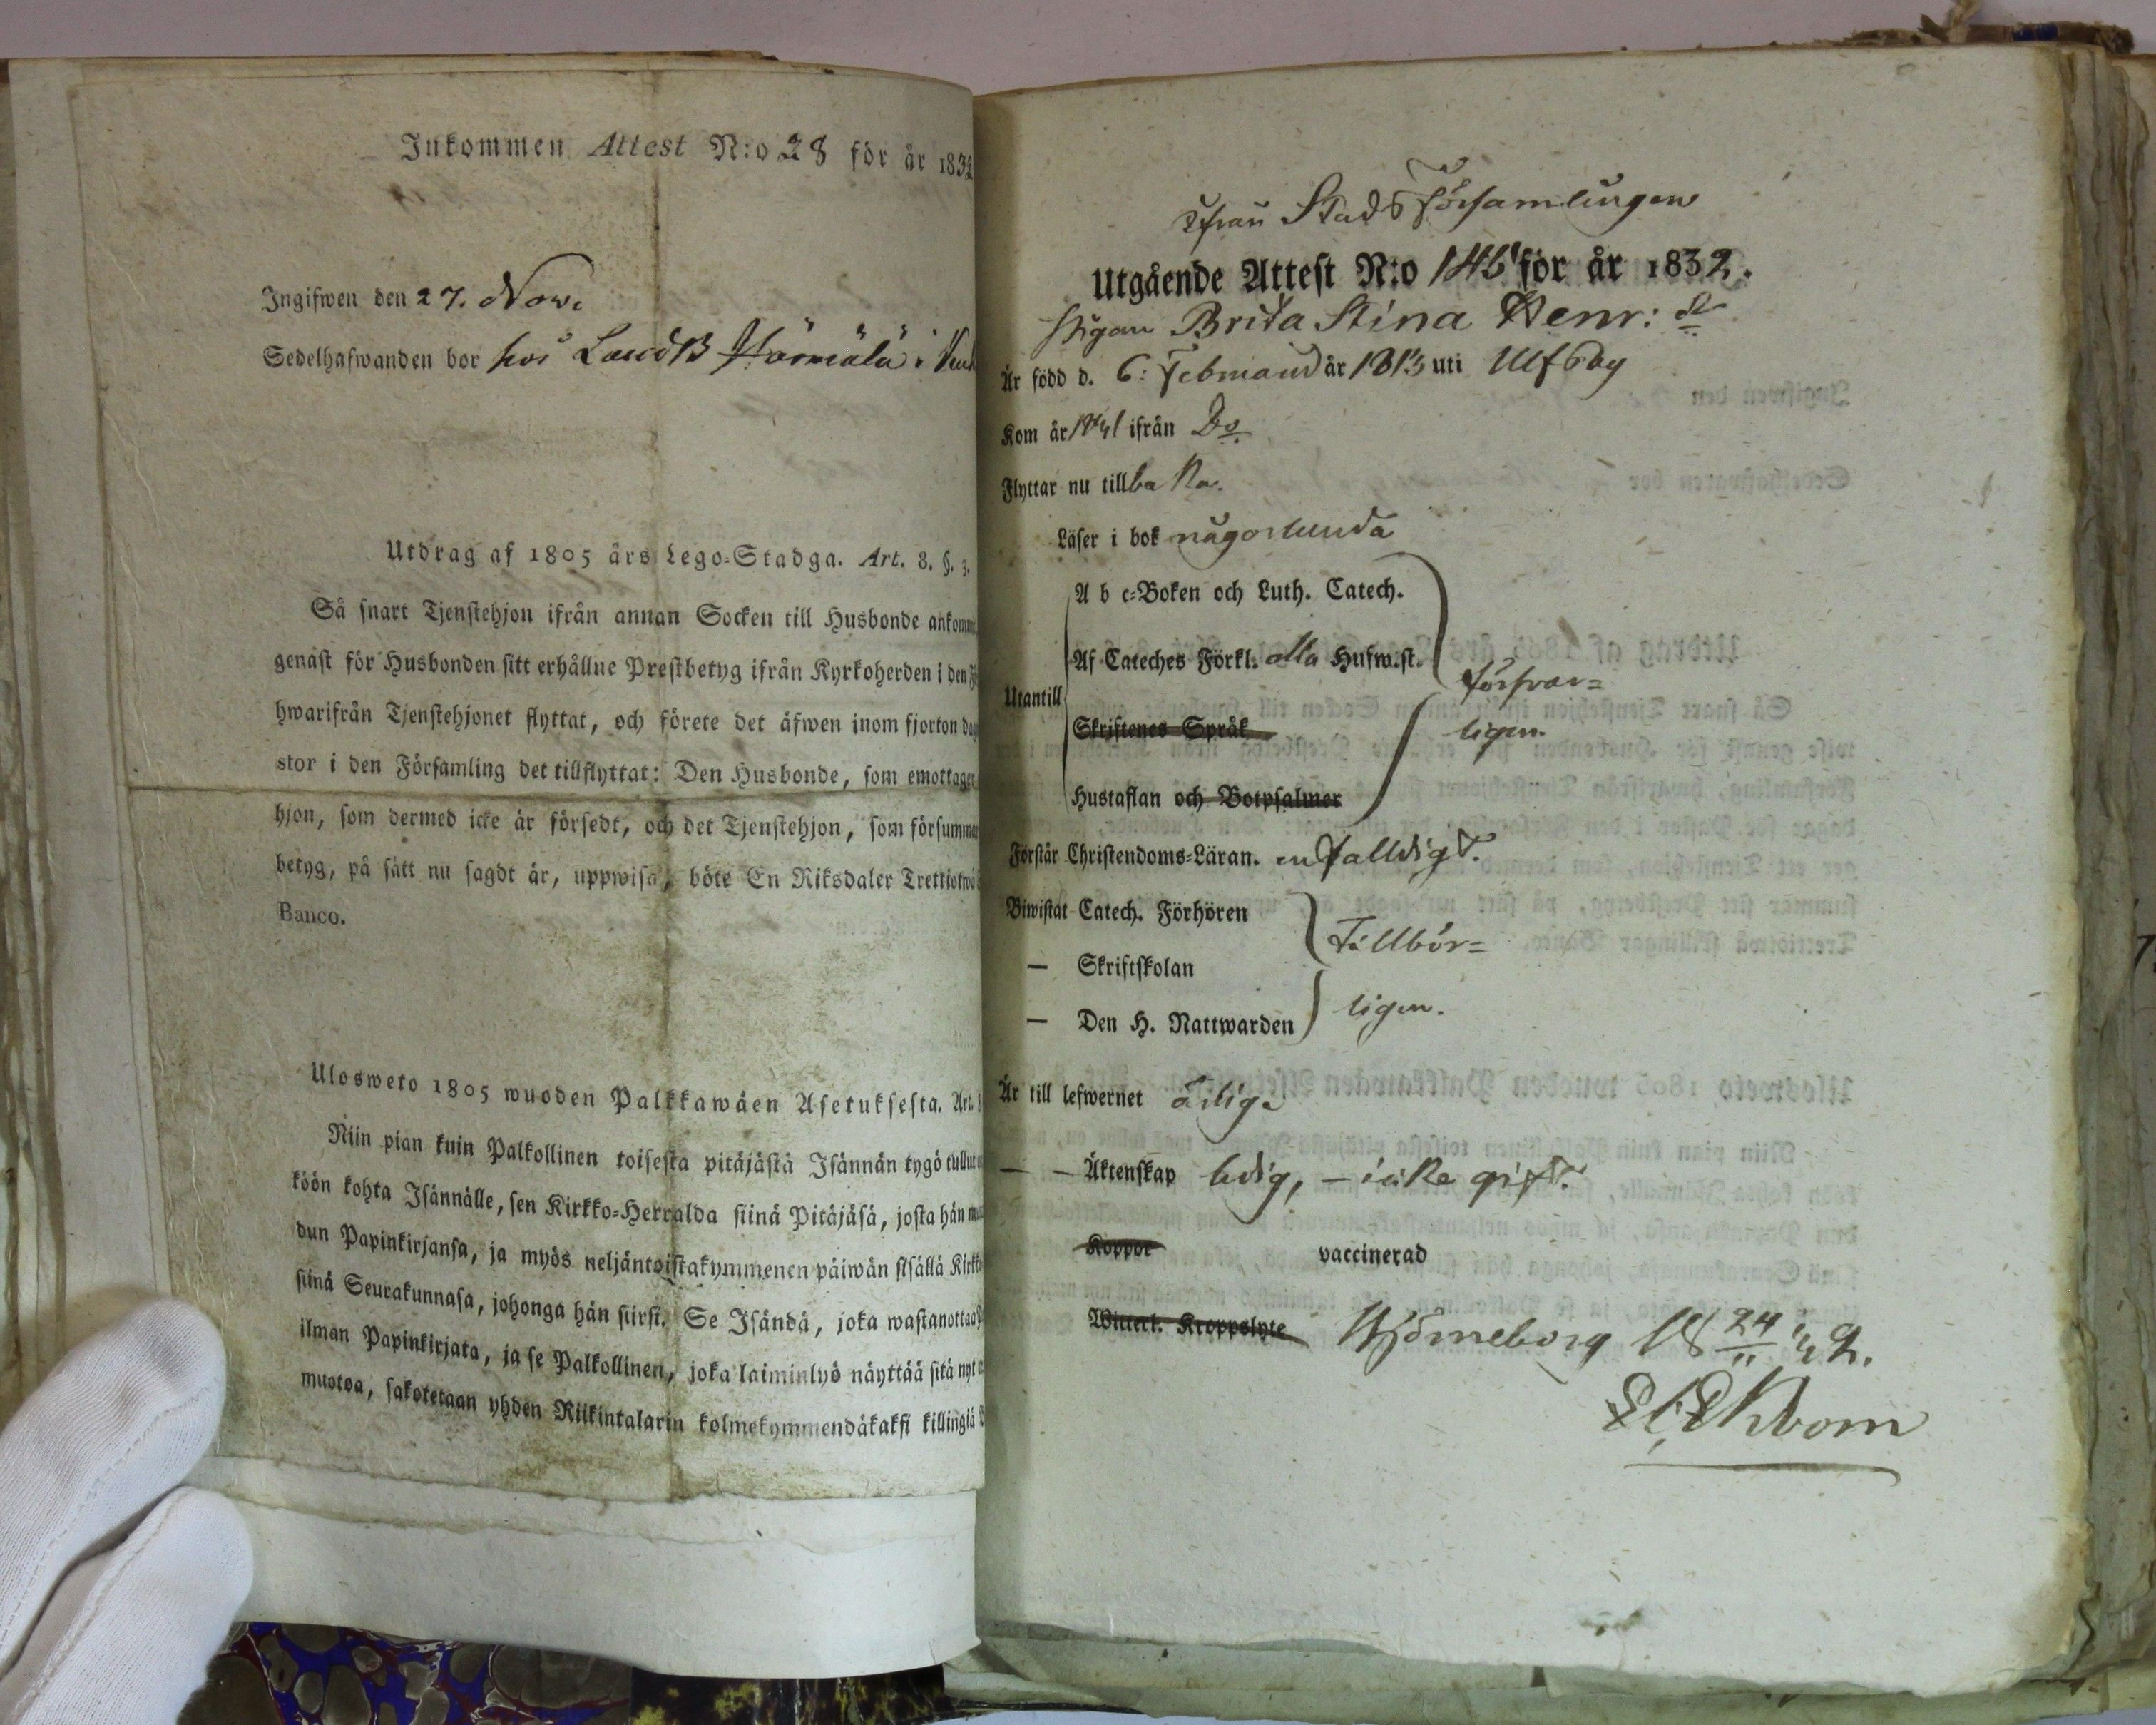 Inkommen Attest N:o 28 för år 1832
Ingifwen den 27. Nov.
Sedelhafwanden bor hos
Utdrag af 1805 års Lego-Stadga. Art. 8. §. 3.
Så snart Tjenstehjon ifrån annan Socken till Husbonde
genast för Husbonden sitt erhållne Prestbetyg ifrån Kyrkoherden i den
hwarifrån Tjenstehjonet flyttat, och förete det äfwen inom fjorton
stor i den Församling det tillflyttat: Den Husbonde, som emottager
hjon, som dermed icke är försedt, och det Tjenstehjon, som
betyg, på sätt nu sagdt är, uppwisa, böte En Riksdaler
Banco.
Ulosweto 1805 wuoden Palkkawäen Asetuksesta. Art.
Niin pian kuin Palkollinen toisesta pitäjästä Isännän tygö
köön kohta Isännälle, sen Kirkko-Herralda siinä Pitäjäsä, josta hän
dun Papinkirjansa, ja myös neljäntoistakymmenen päiwän sisällä
siinä Seurakunnasa, johonga hän siirsi. Se Isändä, joka
ilman Papinkirjata, ja se Palkollinen, joka laiminlyö näyttää sitä nyt
muotoa, sakotetaan yhden Riikintalarin kolmekymmendäkaksi killingiä
ifrån Stads Församlingen
Utgående Attest N:o för år 1832.
Pigan Brita Stina Henr: dr
Är född d. 6: Februarii år 1813 uti Ulfsby
Kom år 1831 ifrån Do
Flyttar nu tillbaka.
Läser i bok någorlunda
A b c-Boken och Luth. Catech.
Af Cateches Förkl. alla Hufw.st.
Utantill
försvar=
Skriftenes Språk
ligen.
Hustaflan och Botpsalmer
Förstår Christendoms-Läran. enfalldigt.
Biwistat Catech. Förhören
Tillbör=
— Skriftskolan
— Den H. Nattwarden
ligen.
Är till lefwernet ärlig
— — Äktenskap ledig, – icke gift.
Koppor vaccinerad
Witterl. Kroppslyte
Björneborg 18 24/11 32.